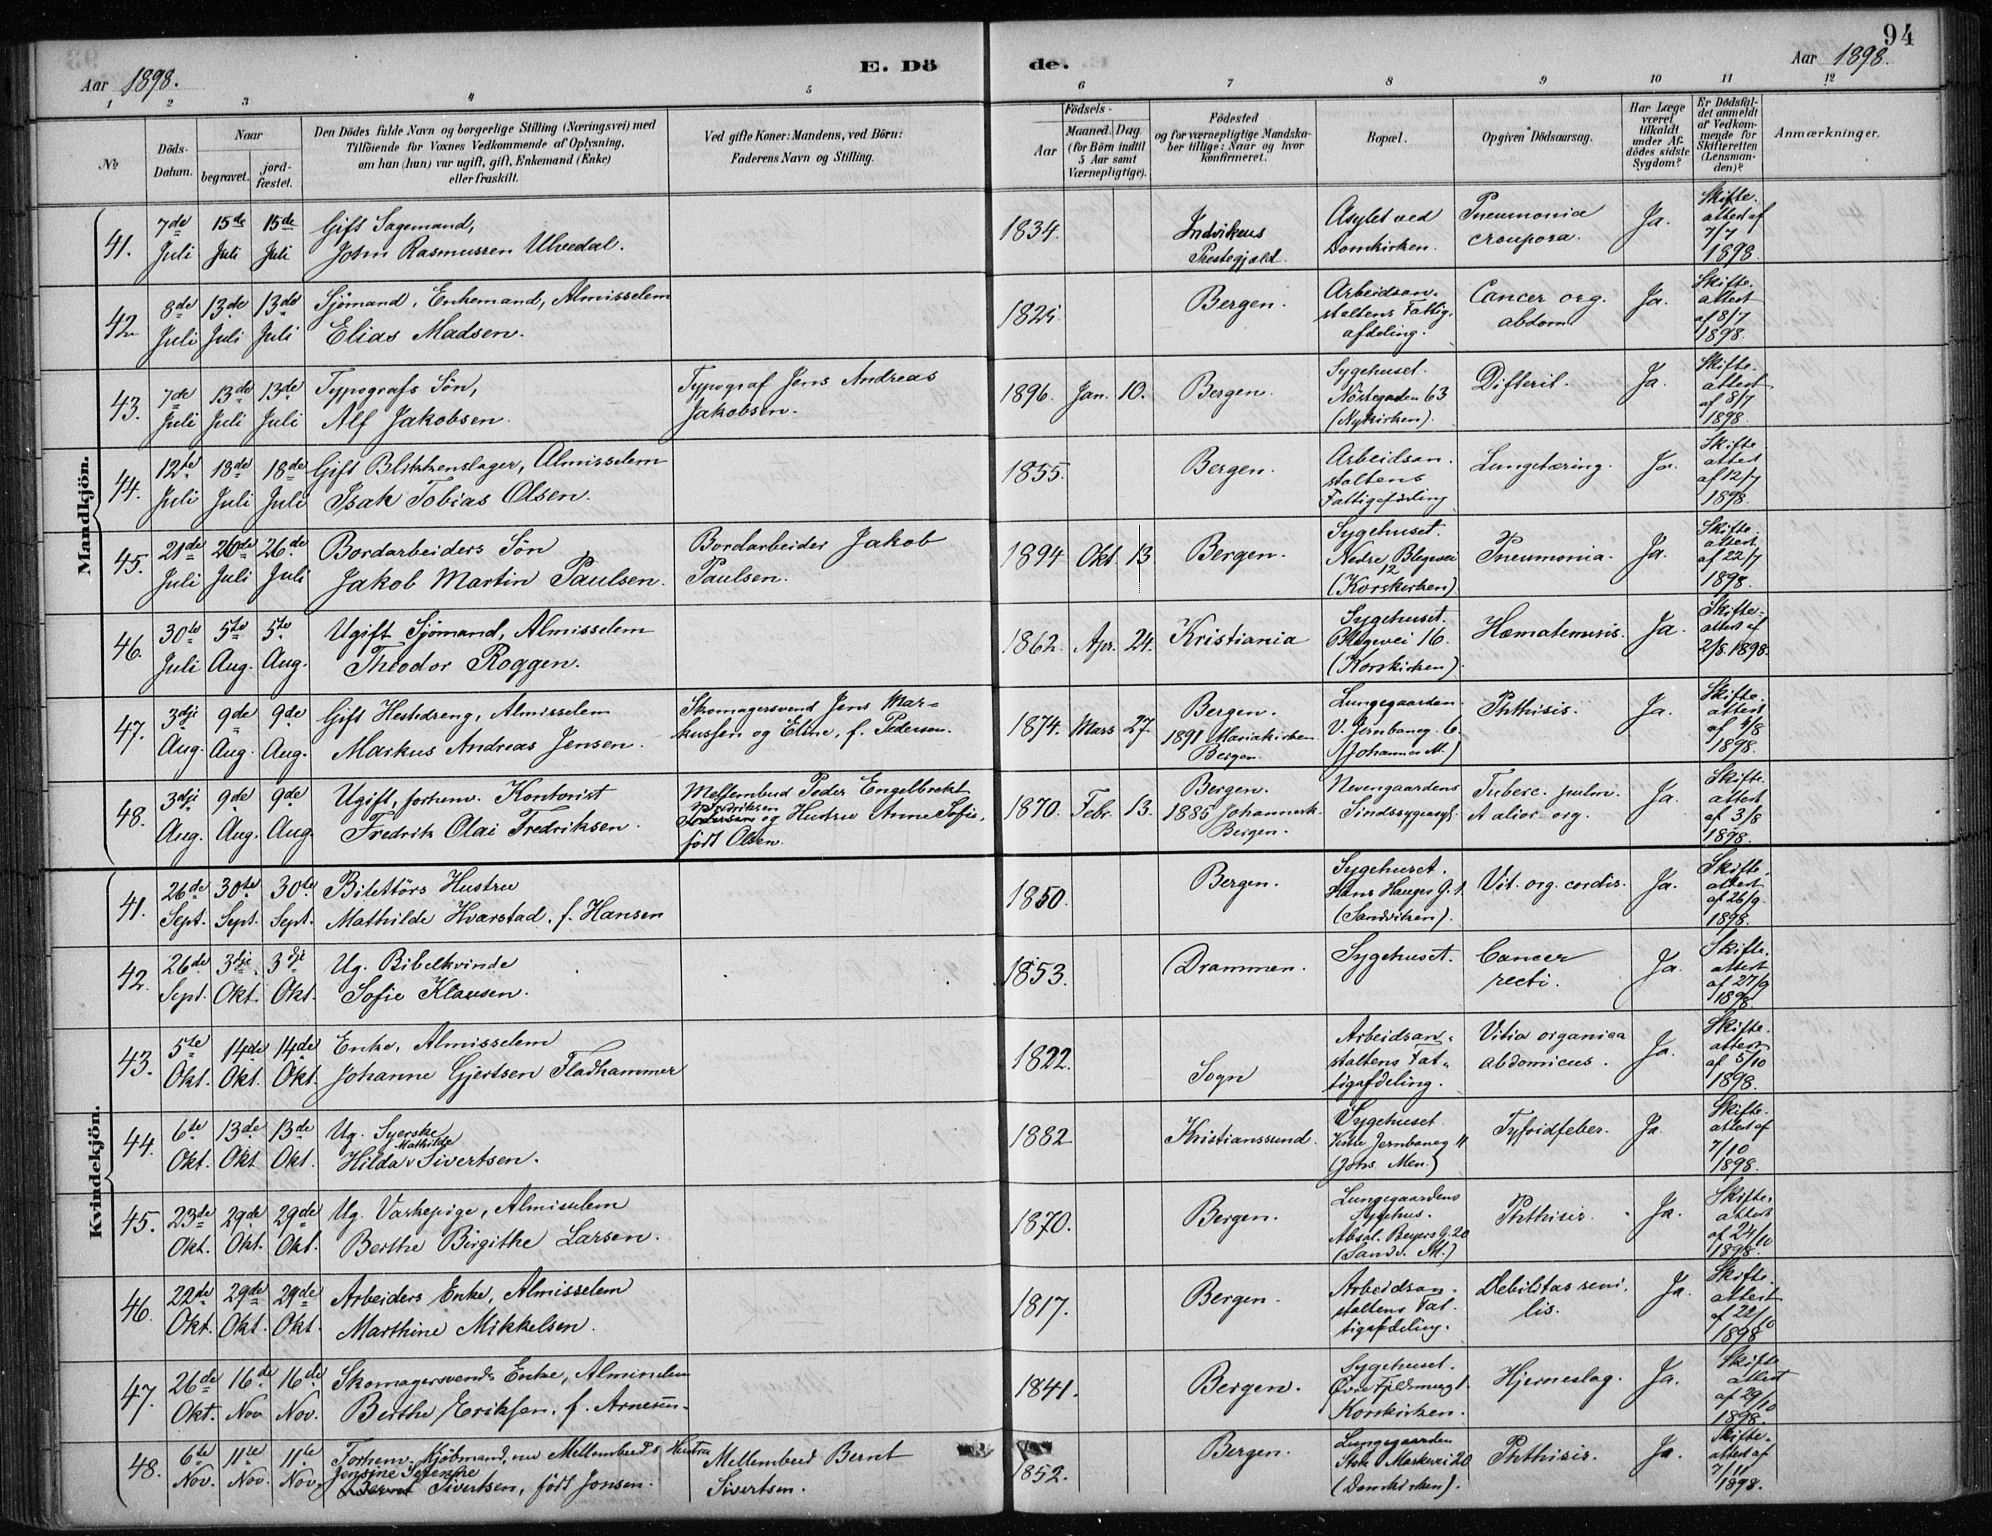 94
Aar 1898.
E. Dö
de.
Aar 1898.
1 2 3 4 5 6 7 8 9 10 11 12
№
Döds-
Datum.
Naar
begravet.
jord-
fæstet.
Den Dödes fulde Navn og borgerlige Stilling (Næringsvei) med
Tilföiende for Voxnes Vedkommende af Oplysning,
om han (hun) var ugift, gift, Enkemand (Enke)
eller fraskilt.
Ved gifte Koner: Mandens, ved Börn:
Faderens Navn og Stilling.
Födsels-
Aar
Maaned. Dag.
(for Börn indtil
5 Aar samt
Værnepligtige).
Födested
og for værnepligtige Mandska-
ber tillige: Naar og hvor
konfirmeret.
Bopæl.
Opgiven Dödsaarsag.
Har Læge
været
tilkaldt
under Af-
dödes sidste
Sygdom?
Er Dödsfal-
det anmeldt
af Vedkom-
mende for
Skifteretten
(Lensman-
den)?
Anmærkninger.
Mandkjön.
41.
7de
Juli
15de
Juli
15de
Juli
Gift Sagemand,
John Rasmussen Ulvedal.
1834.
Indvikens
Prestegjæld.
Asylet ved
Domkirken.
Pneumonia
crouposa.
Ja.
Skifte-
attest af
7/7
1898.
42
8de
Juli
13de
Juli
13de
Juli
Sjömand, Enkemand, Almisselem
Elias Madsen.
1825.
Bergen.
Arbeidsan-
staltens Fattig-
afdeling.
Cancer org.
abdom.
Ja.
Skifte-
attest
af 8/7
1898.
43.
7de
Juli
13de
Juli
13de
Juli
Typografs Sön,
Alf Jakobsen.
Typograf Jens Andreas
Jakobsen.
1896. Jan. 10.
Bergen.
Sygehuset.
Nöstegaden 63
(Nykirken).
Difterit.
Ja.
Skifte-
attest
af 8/7
1898.
44.
12te
Juli
18de
Juli
18de
Juli
Gift Blikkenslager, Almisselem
Isak Tobias Olsen.
1855.
Bergen.
Arbeidsan-
staltens
Fattigafdeling
Lungetæring.
Ja.
Skifte-
attest
af 12/7
1898.
45.
21de
Juli
26de
Juli
26de
Juli
Bordarbeiders Sön
Jakob Martin Paulsen.
Bordarbeider Jakob
Paulsen.
1894 Okt. 13
Bergen.
Sygehuset.
Nedre Blegevei
12
(Korskirken)
Pneumonia.
Ja.
Skifte-
attest
af 22/7
1898.
46.
30te
Juli
5te
Aug.
5te
Aug.
Ugift Sjömand, Almisselem
Theodor Roggen.
1862. Apr. 24.
Kristiania
Sygehuset.
Blegevei 16.
(Korskirken).
Hæmatemesis.
Ja.
Skifte-
attest af
2/8. 1898.
47.
3dje
Aug.
9de
Aug.
9de
Aug.
Gift Hestedreng, Almisselem
Markus Andreas Jensen.
Skomagersvend Jens Mar-
kussen og Eline, f. Pedersen.
1874. Mars 27.
Bergen.
1891 Mariakirken
Bergen.
Lungegaarden.
V. Jernbaneg. 6.
(Johannes M.)
Phthisis.
Ja.
Skifte-
attest
af 4/8
1898.
48.
3dje
Aug.
9de
Aug.
9de
Aug.
Ugift, forhenv. Kontorist
Fredrik Olai Fredriksen.
Mellembud Peder Engelbrekt
Fredriksen
og Hustru Anne Sofie,
født Olsen.
1870. Febr. 13.
Bergen.
1885 Johannesk.
Bergen.
Nevengaardens
Sindssygeasyl.
Tuberc. pulm.
et alior. org.
Ja.
Skifte-
attest
af 3/8
1898.
Kvindekjön.
41.
26de
Sept.
30te
Sept.
30te
Sept.
Bilettörs Hustru
Mathilde Kvarstad, f. Hansen
1850.
Bergen.
Sygehuset.
Hans Hauges G. 1.
(Sandviken).
Vit. org. cordis.
Ja.
Skifte-
attest
af 26/9.
1898.
42.
26de
Sept.
3dje
Okt.
3dje
Okt.
Ug. Bibelkvinde
Sofie Klausen.
1853.
Drammen.
Sygehuset.
Cancer
recti.
Ja.
Skifte-
attest
af 27/9
1898.
43.
5te
Okt.
14de
Okt.
14de
Okt.
Enke, Almisselem
Johanne Gjertsen Fladhammer
1822.
Sogn
Arbeidsan-
staltens Fat-
tigafdeling.
Vitia organica
abdominus.
Ja.
Skifte-
attest
af 5/10
1898.
44.
6te
Okt.
13de
Okt
13de
Okt.
Ug. Syerske
Mathilde
Hilda Sivertsen.
1882
Kristianssund.
Sygehuset
Vestre Jernbaneg. 11
(Johs. Men.)
Tyfoidfeber.
Ja.
Skifte-
attest af
7/10
1898.
45.
23de
Okt.
29de
Okt.
29de
Okt.
Ug. Vaskepige, Almisselem
Berthe Birgithe Larsen.
1870.
Bergen.
Lungegaardens
Sygehus.
Absal. Beyers G. 20
(Sandv. M.)
Phthisis.
Ja.
Skifte-
attest
af 24/10
1898.
46.
22de
Okt.
29de
Okt.
29de
Okt.
Arbeiders Enke, Almisselem
Marthine Mikkelsen.
1817.
Bergen.
Arbeidsan-
staltens Fat-
tigafdeling.
Debilitas seni-
lis.
Ja.
Skifte-
attest
af 22/10
1898
47.
26de
Okt.
16de
Nov
16de
Nov.
Skomagersvends Enke, Almisselem
Berthe Eriksen, f. Arnesen.
1841.
Bergen.
Sygehuset.
Øvre Fjeldsmug 1.
Korskirken.
Hjerneslag.
Ja.
Skifte-
attest
af 29/10
1898.
48.
6te
Nov.
11te
Nov.
11te
Nov.
Forhen. Kjöbmand, nu Mellembuds Hustru
Jensine Severine
Sivertsen, født Jonsen.
Mellembud Bernt
Sivertsen.
1852.
Bergen.
Lungegaarden
Store Markevei 20
(Domkirken).
Phthisis.
Ja.
Skifte-
attest af
7/11
1898.